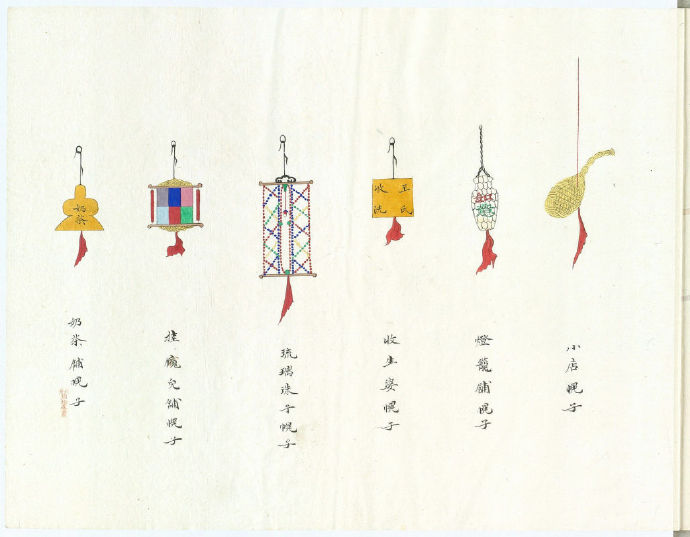 小店幌子
燈籠舖幌子
收生婆幌子
王氏
收洗
琉璃珠子幌子
挂癜兒舖幌子
奶茶舖幌子
奶茶